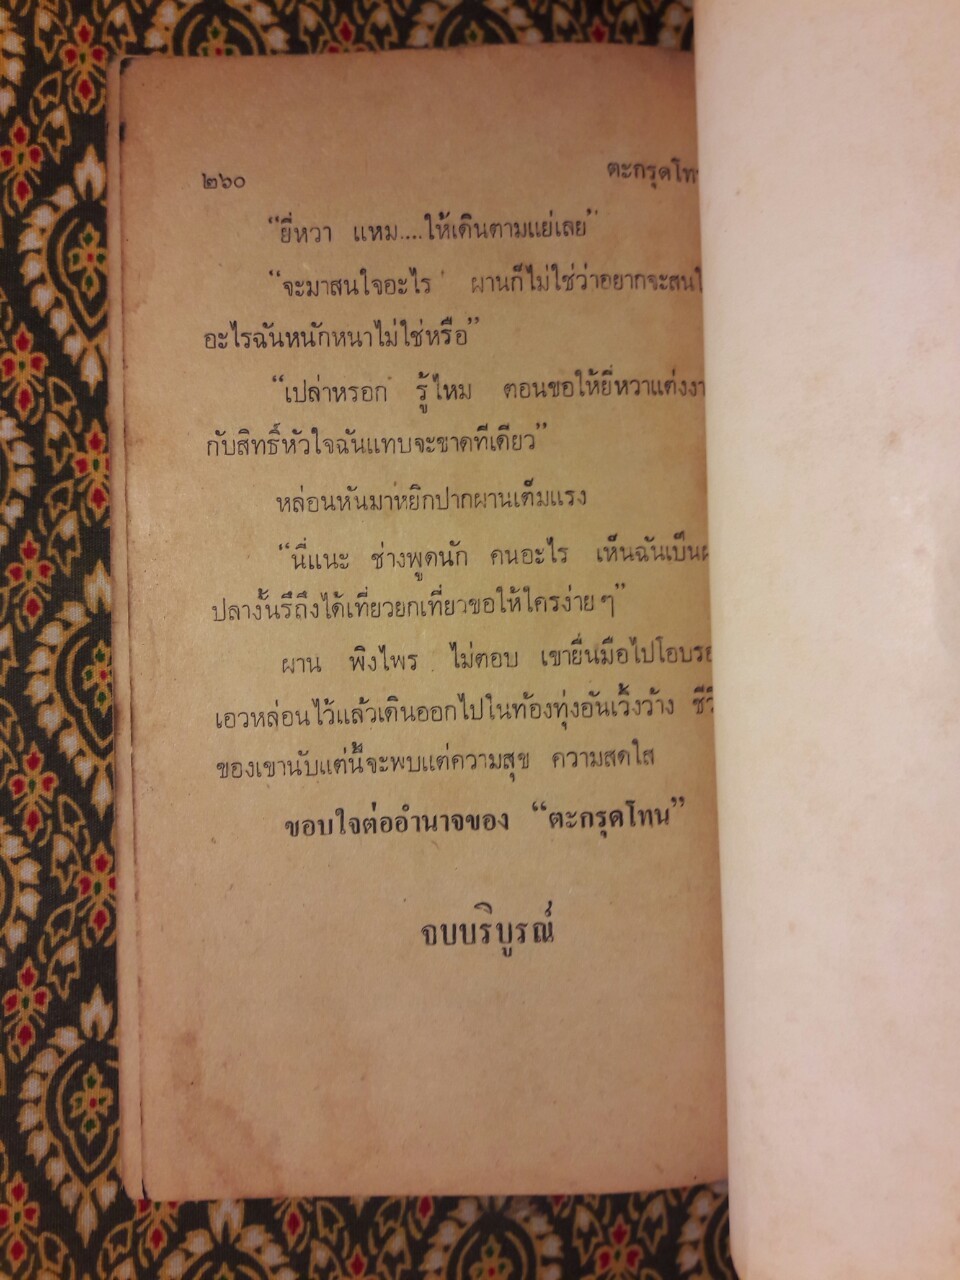 ๒๖๐ ตะกรุดโทน
“ยี่หวา แหม....ให้เดินตามแย่เลย”
“จะมาสนใจอะไร ผานก็ไม่ใช่ว่าอยากจะสนใ
อะไรฉันหนักหนาไม่ใช่หรือ”
“เปล่าหรอก รู้ไหม ตอนขอให้ยี่หวาแต่งงา
กับสิทธิ์หัวใจฉันแทบจะขาดทีเดียว”
หล่อนหันมาหยิกปากผานเต็มแรง
“นี่แนะ ช่างพูดนัก คนอะไร เห็นฉันเป็นผ
ปลางั้นรึถึงได้เที่ยวยกเที่ยวขอให้ใครง่าย ๆ”
ผาน พิงไพร ไม่ตอบ เขายื่นมือไปโอบรอ
เอวหล่อนไว้แล้วเดินออกไปในท้องทุ่งอันเวิ้งว้าง ชีวิ
ของเขานับแต่นี้จะพบแต่ความสุข ความสดใส
ขอบใจต่ออำนาจของ “ตะกรุดโทน”
จบบริบูรณ์